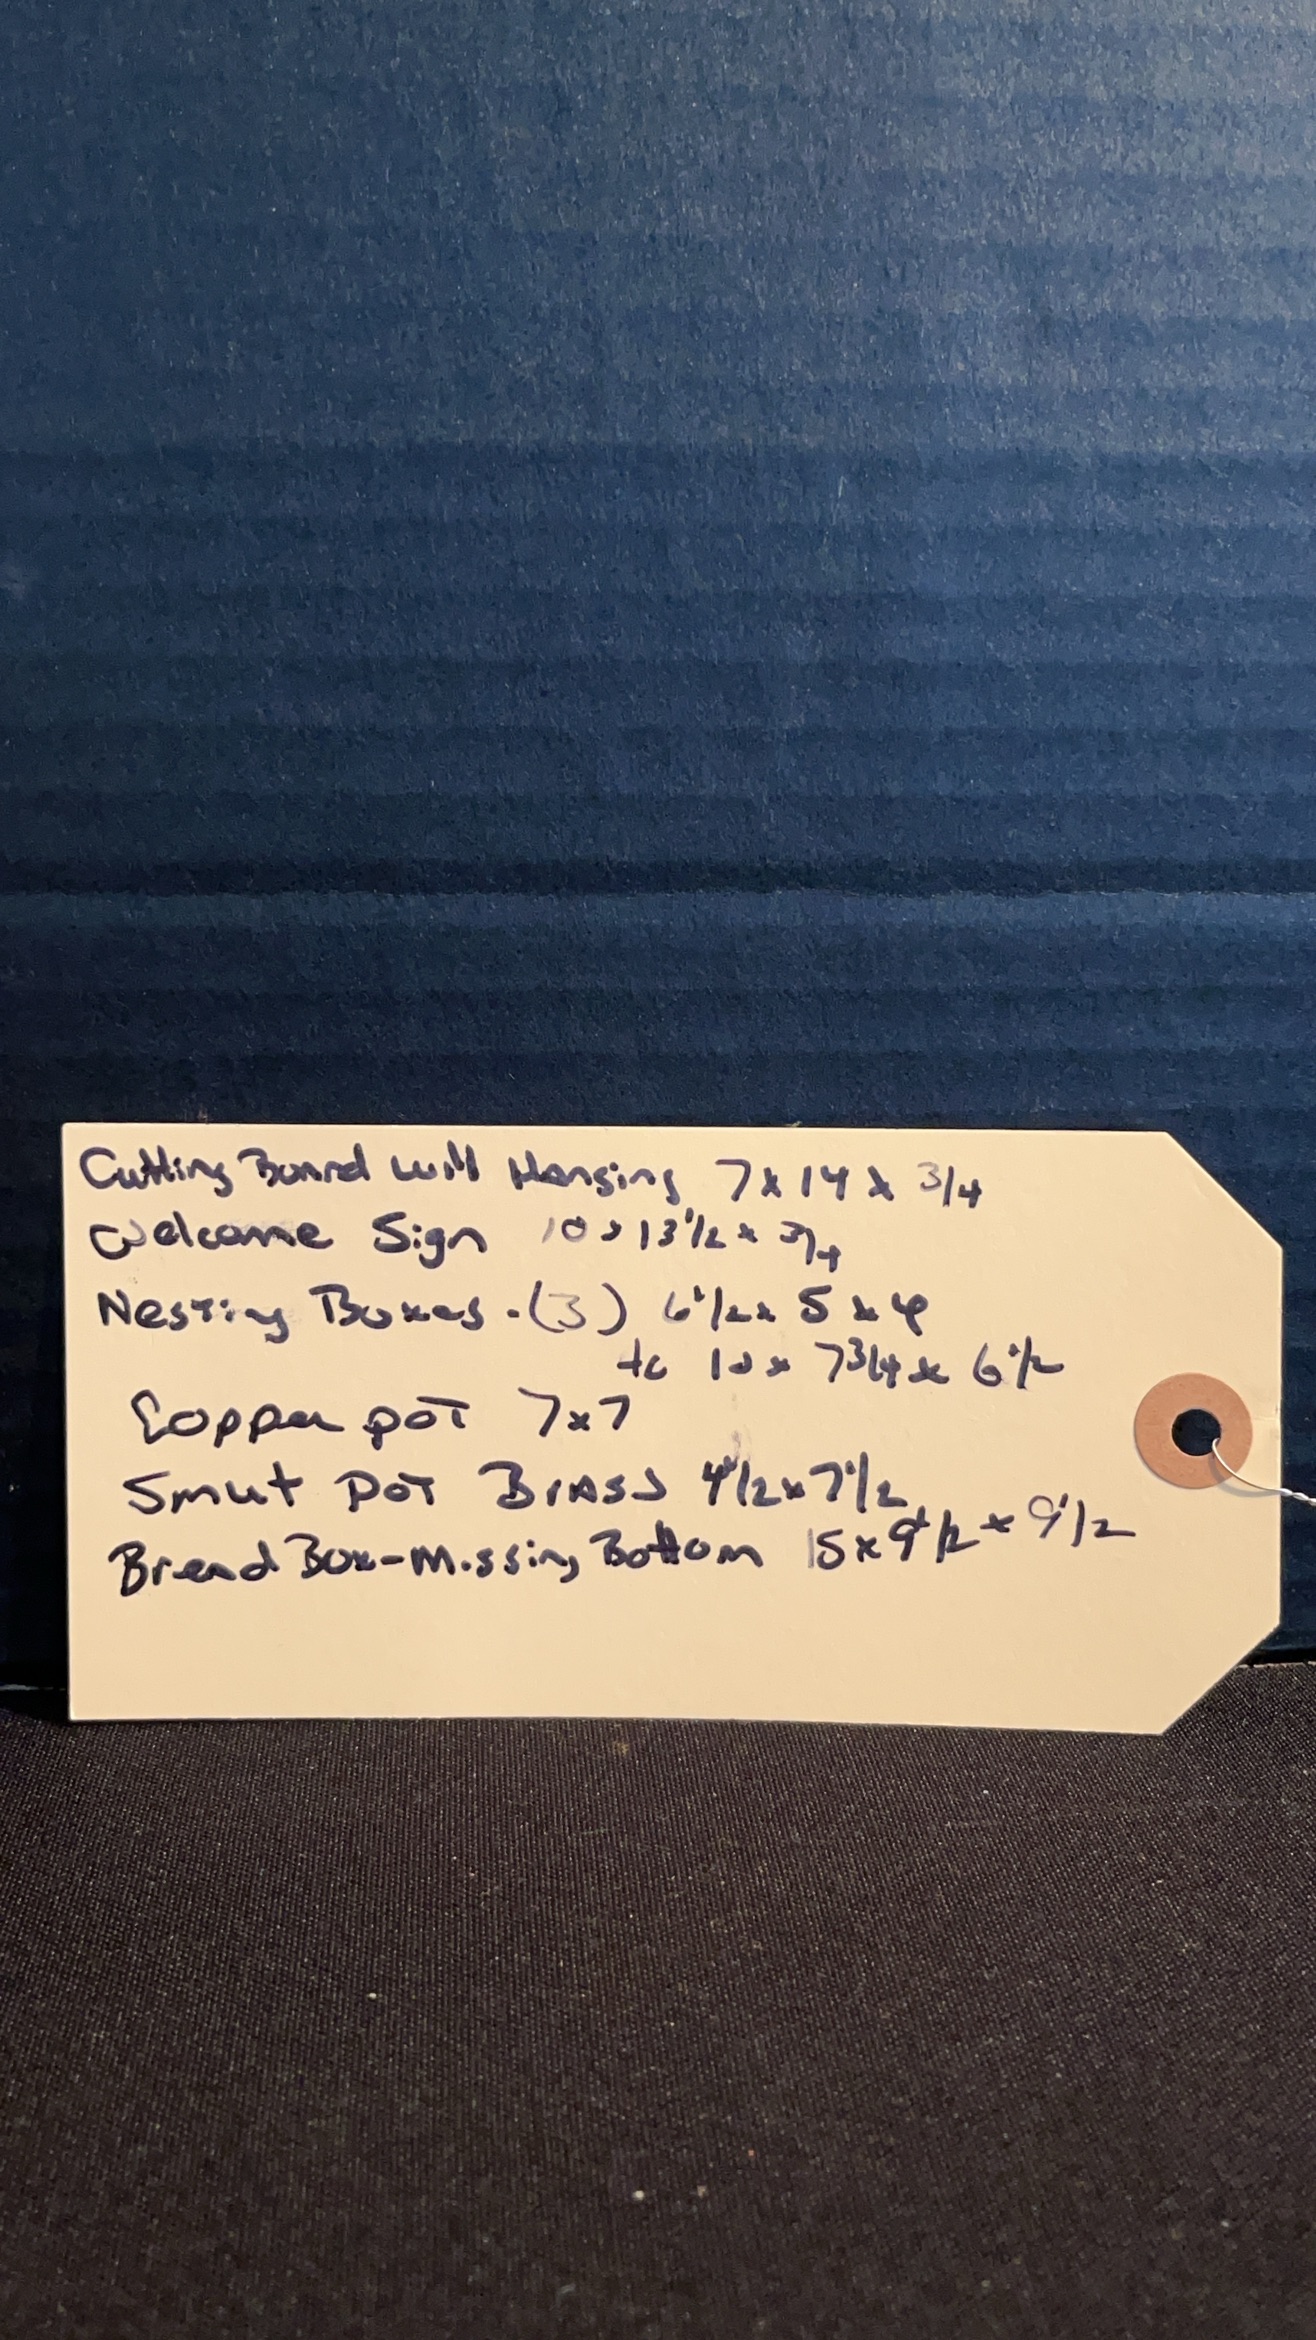 Cutting Board Wall Hanging 7 x 14 x 3/4
Welcome Sign 10 x 13 1/2 x 3/4
Nesting Boxes - (3) 6 1/2 x 5 x 4
to 10 x 7 3/4 x 6 1/2
Copper pot 7x7
Smut Pot Brass 4 1/2 x 7 1/2
Bread Box - Missing Bottom 15 x 9 1/2 x 9 1/2